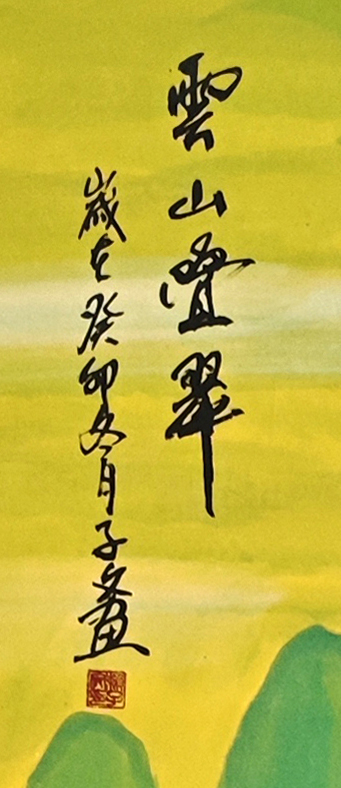 雲山疊翠
歲在癸卯冬月子文畫